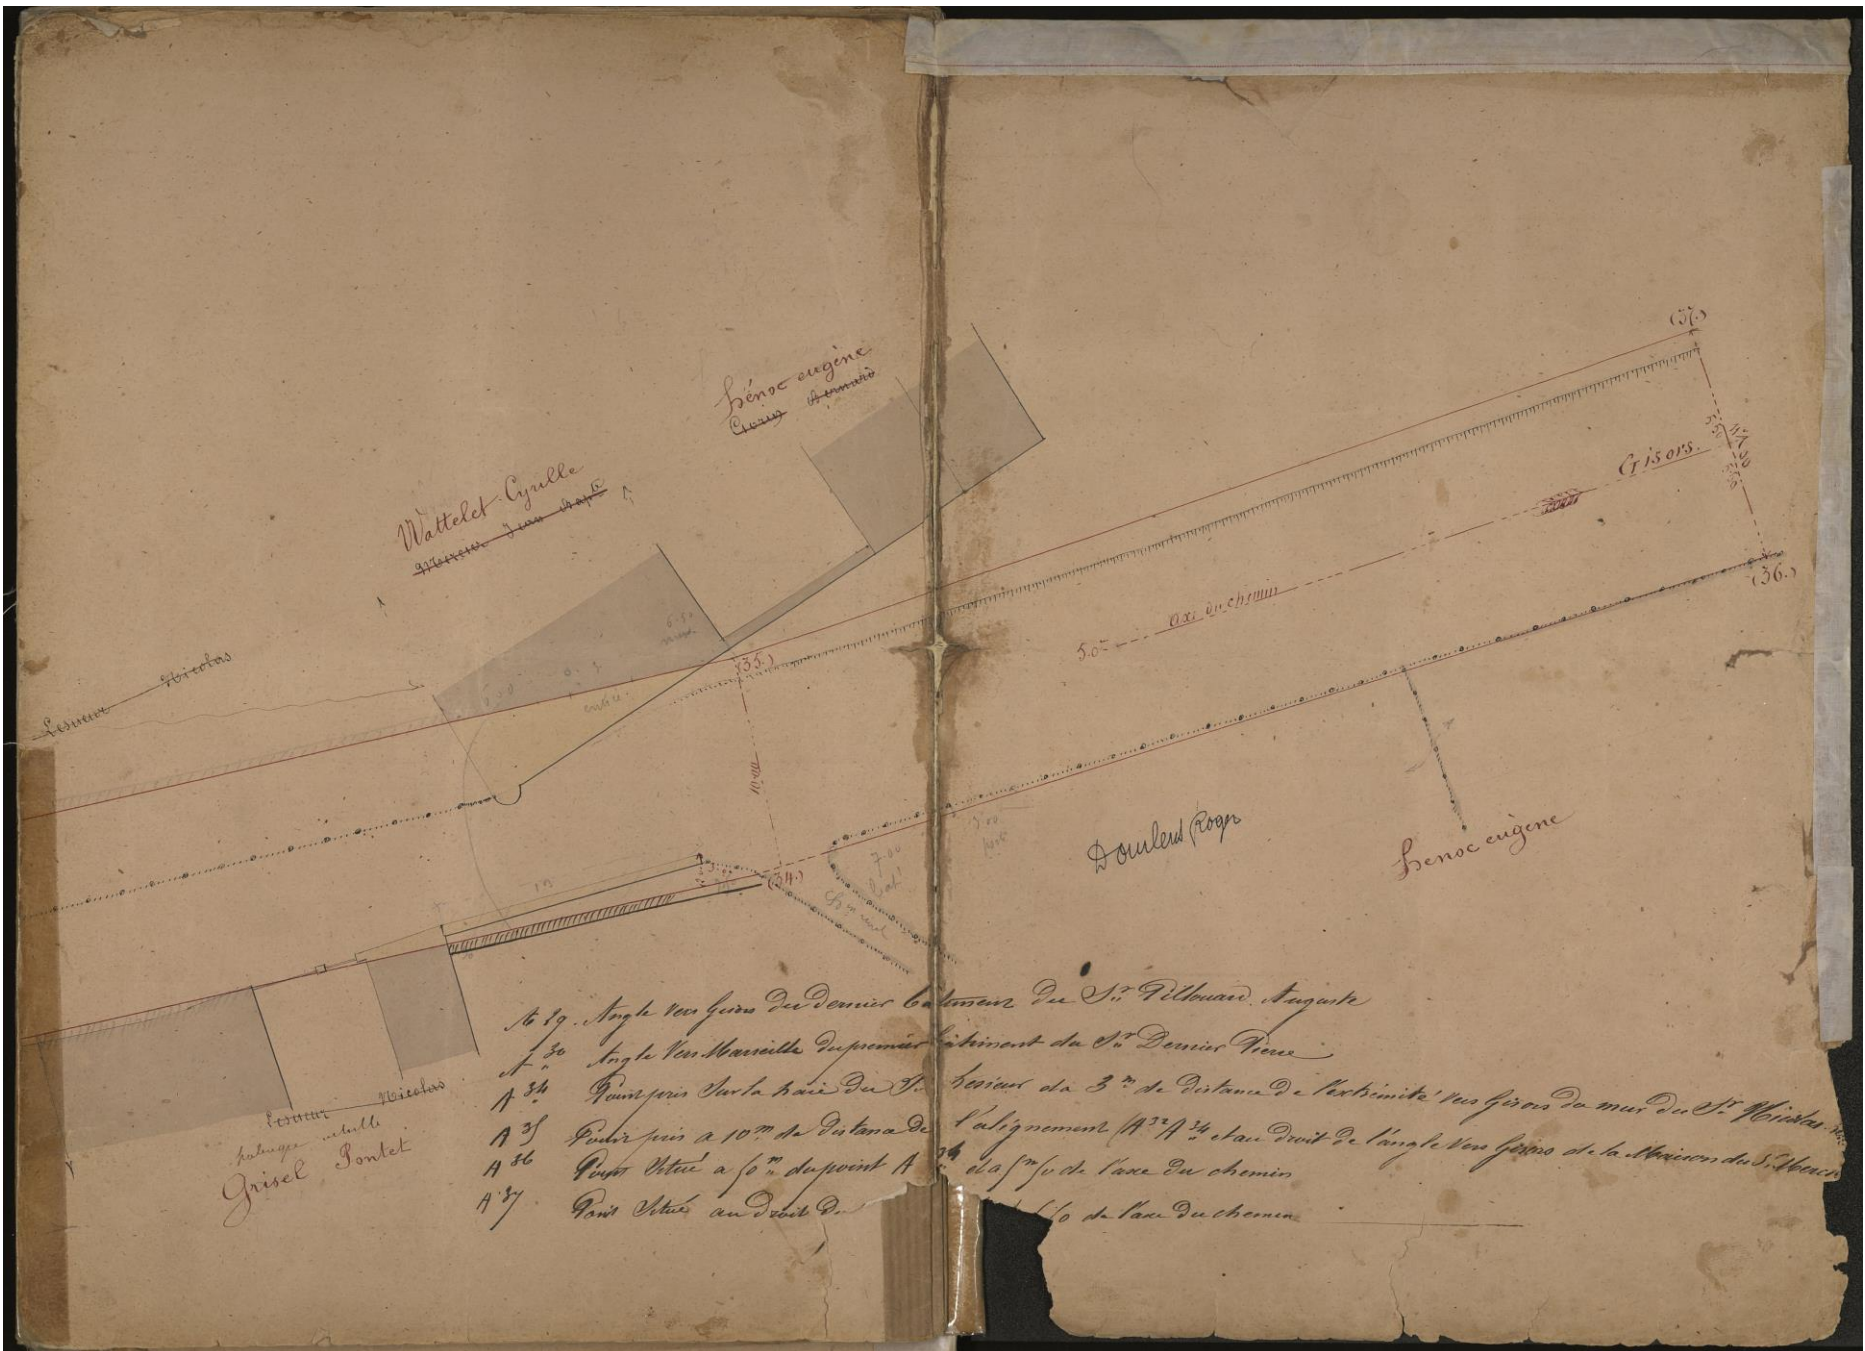 (37.)
hénoc eugène
Bernard
Gisors.
11m00
5.50
5.50
Wattelet Cyrille
Mercier Jean Bapte
(36.)
Axe du chemin
5.0
6.50
Lesueur Nicolas
(35.)
entrée
10m00
Doulens Roger
henoc eugène
13
3.00
(34.)
7.00
Chin rural
A 29. Angle vers Gisors du dernier batiment du Sr. Pillouard Auguste
A 30 Angle vers Marseille du premier bâtiment du Sr. Dernier Pierre
A 34 Point pris sur la haie du Sr. Lesieur et a 3m de distance de l'extrémité vers Gisors du mur du Sr. Nicolas
A 35 Point pris a 10m de distance de l'alignement (A 32 A 34 et au droit de l'angle vers Gisors de la Maison du Sr. Merci
A 36 Point situé a 50m du point A 34 et a 5m50 de l'axe du chemin
A 37 Point situé au droit du 5m50 de l'axe du chemin
Lesueur Nicolas
Grisel Pontet